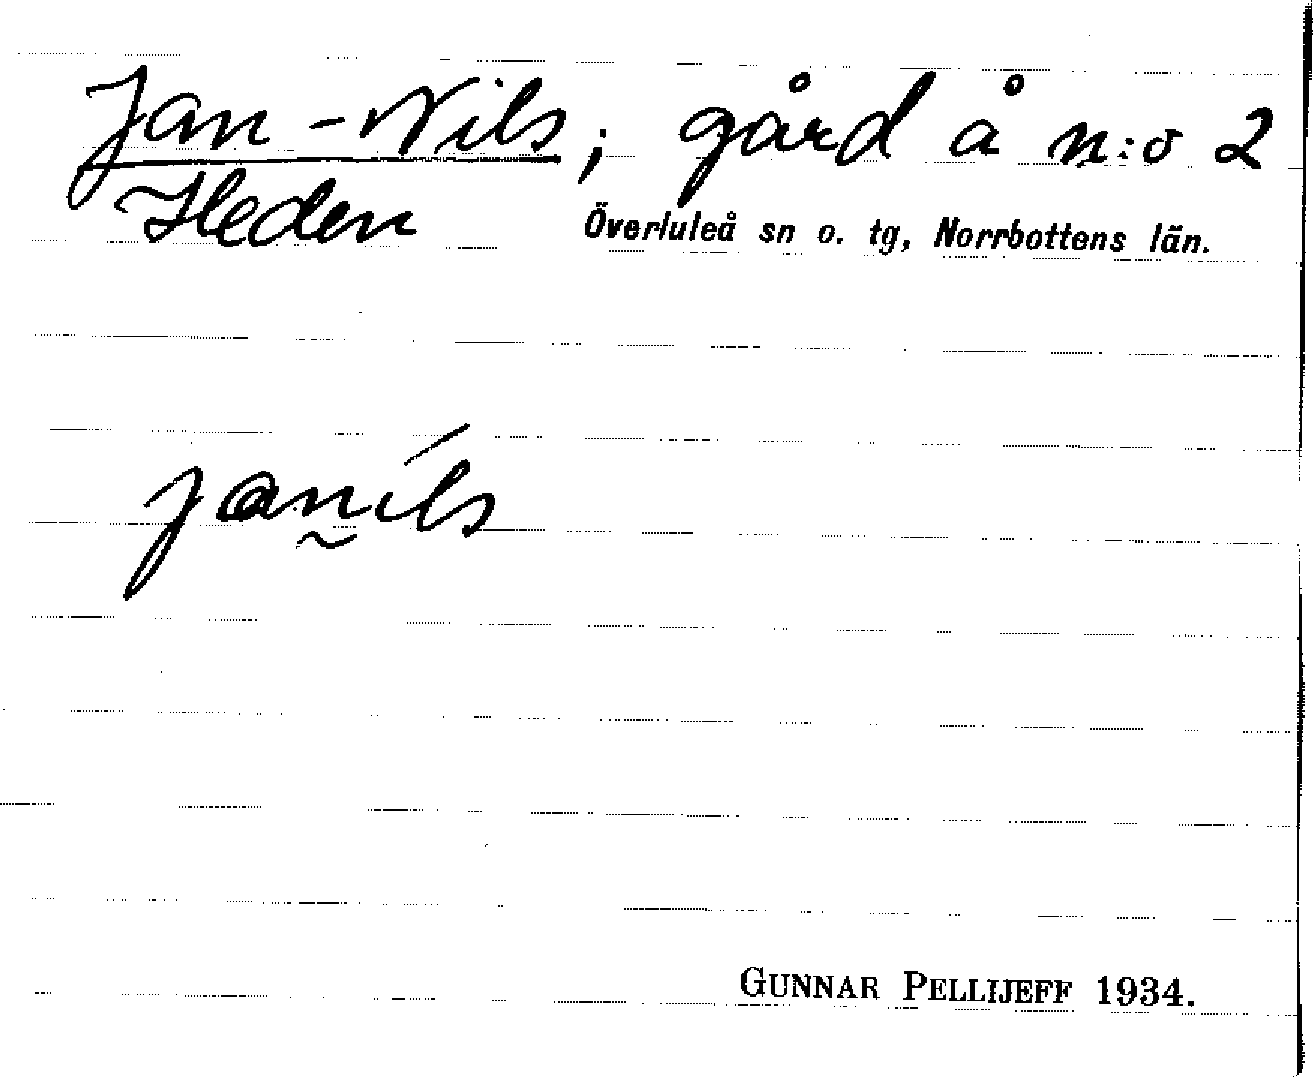 Jan-Nils, gård å n:o 2
Heden Överluleå sn o. tg, Norrbottens län.
janíls
GUNNAR PELLIJEFF 1934.